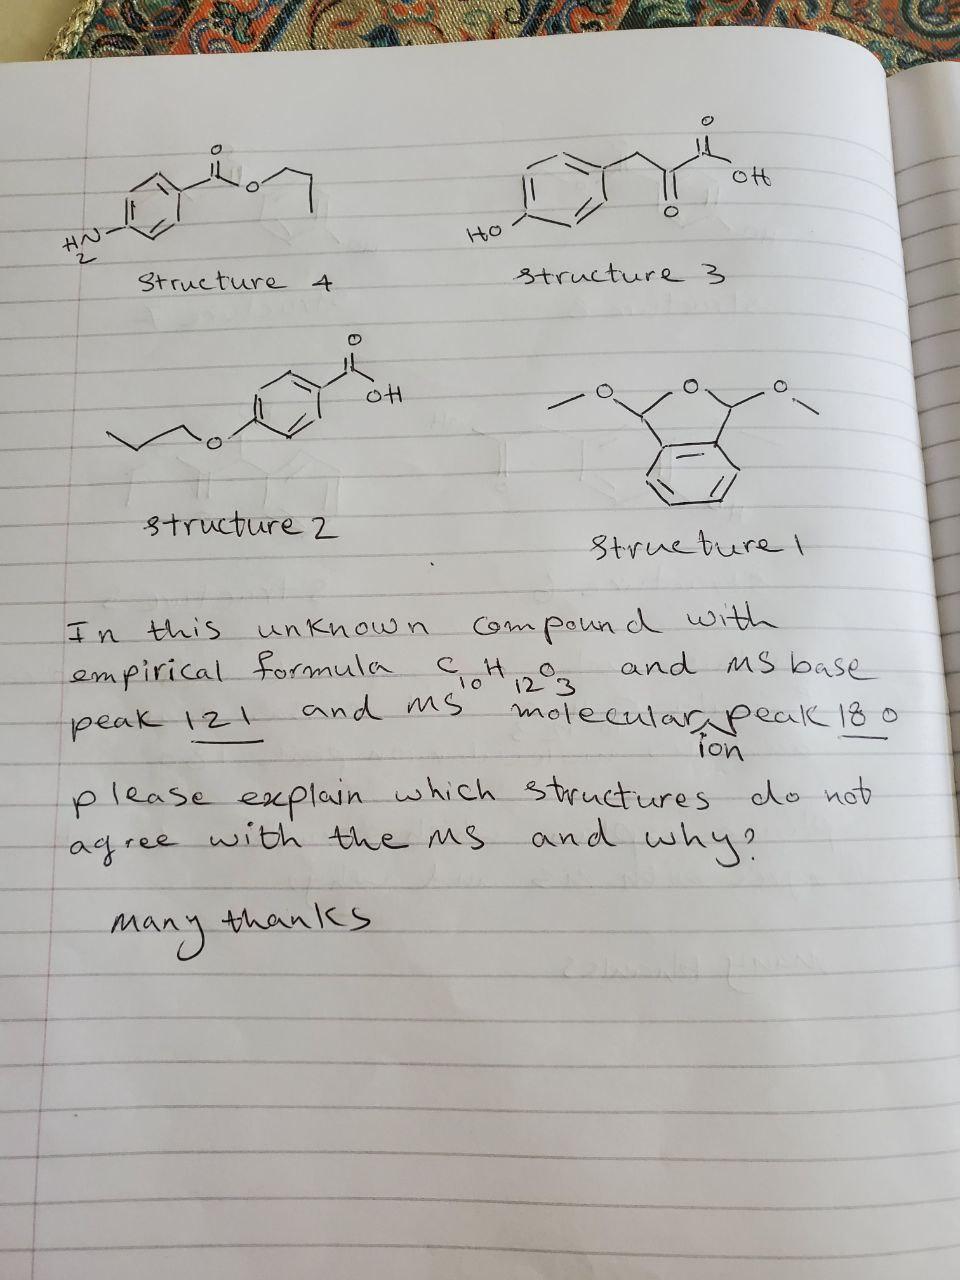 O
O
H2N
Structure 4
O
OH
O
HO
Structure 3
O
OH
O
Structure 2
O O O
Structure 1
In this unknown compound with
empirical formula C10H12O3 and MS base
peak 121 and MS molecular ion peak 180
please explain which structures do not
agree with the MS and why?
Many thanks